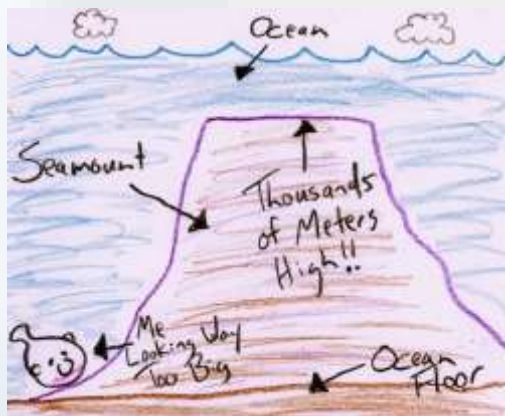 Ocean
Seamount
Thousands
of Meters
High!!
Me
Looking Way
Too Big
Ocean
Floor